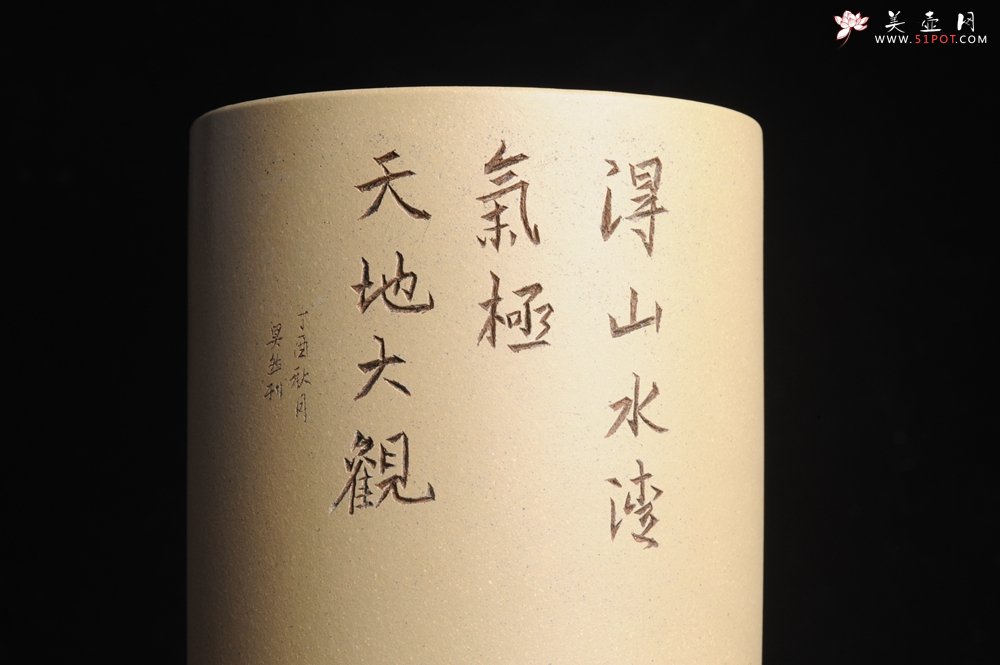 美壶网
WWW.51POT.COM
得山水清
氣極
天地大觀
丁酉秋月